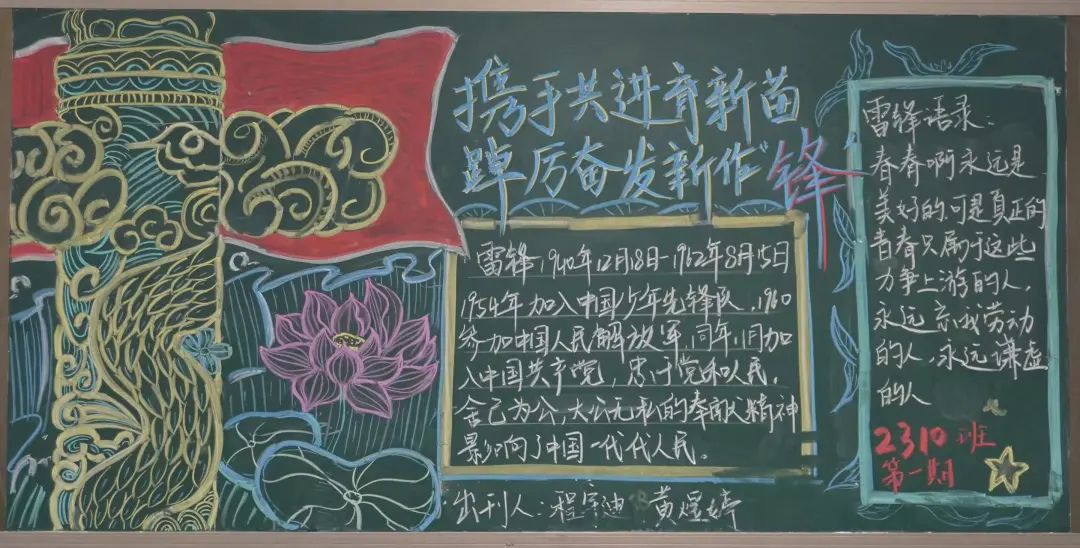 携手共进育新苗
踔厉奋发新作“锋”
雷锋,1940年12月18日-1962年8月15日
1954年加入中国少年先锋队,1960
参加中国人民解放军,同年11月加
入中国共产党,忠于党和人民,
舍己为公,大公无私的奉献精神
影响了中国一代代人民。
出刊人:程宇迪 黄煜婷
雷锋语录:
青春啊永远是
美好的,可是真正的
青春只属于这些
力争上游的人,
永远忘我劳动
的人,永远谦虚
的人
2310班
第一期